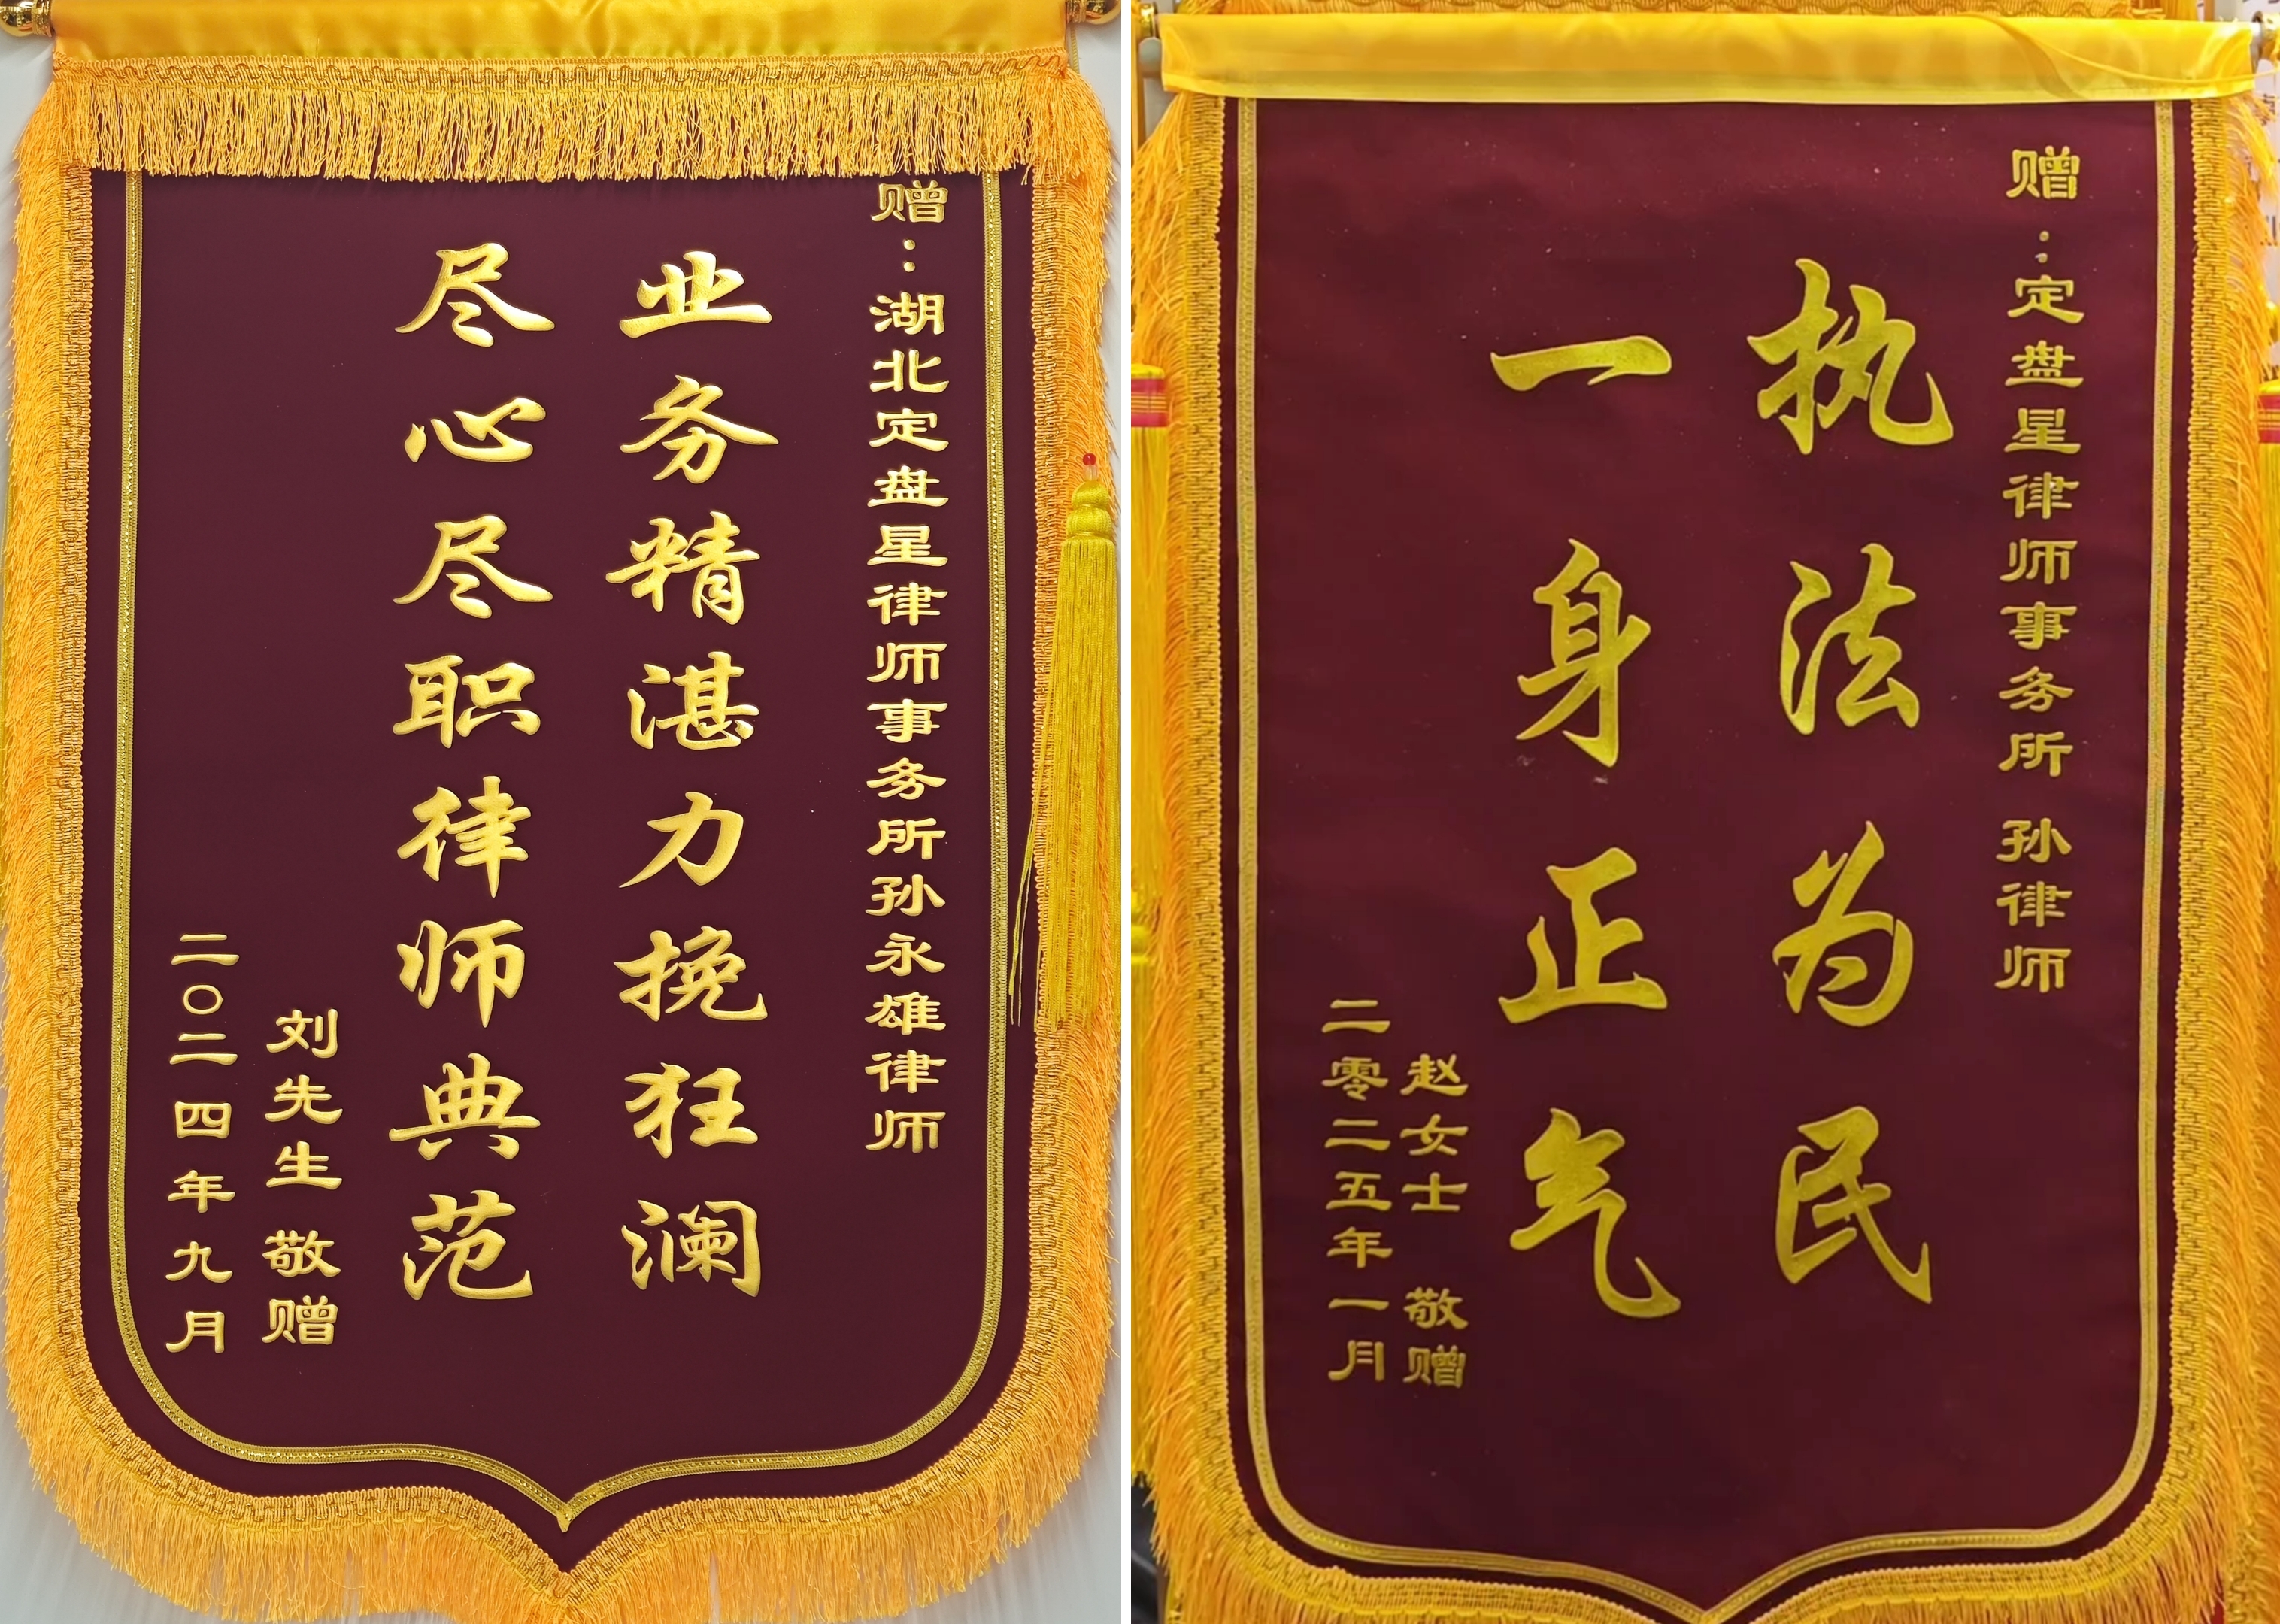 赠：湖北定盘星律师事务所孙永雄律师
业务精湛力挽狂澜
尽心尽职律师典范
刘先生 敬赠
二〇二四年九月
赠：定盘星律师事务所 孙律师
执法为民
一身正气
赵女士 敬赠
二零二五年一月